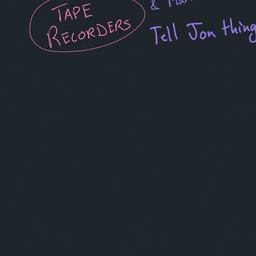 TAPE
RECORDERS
&
Tell Jon thing